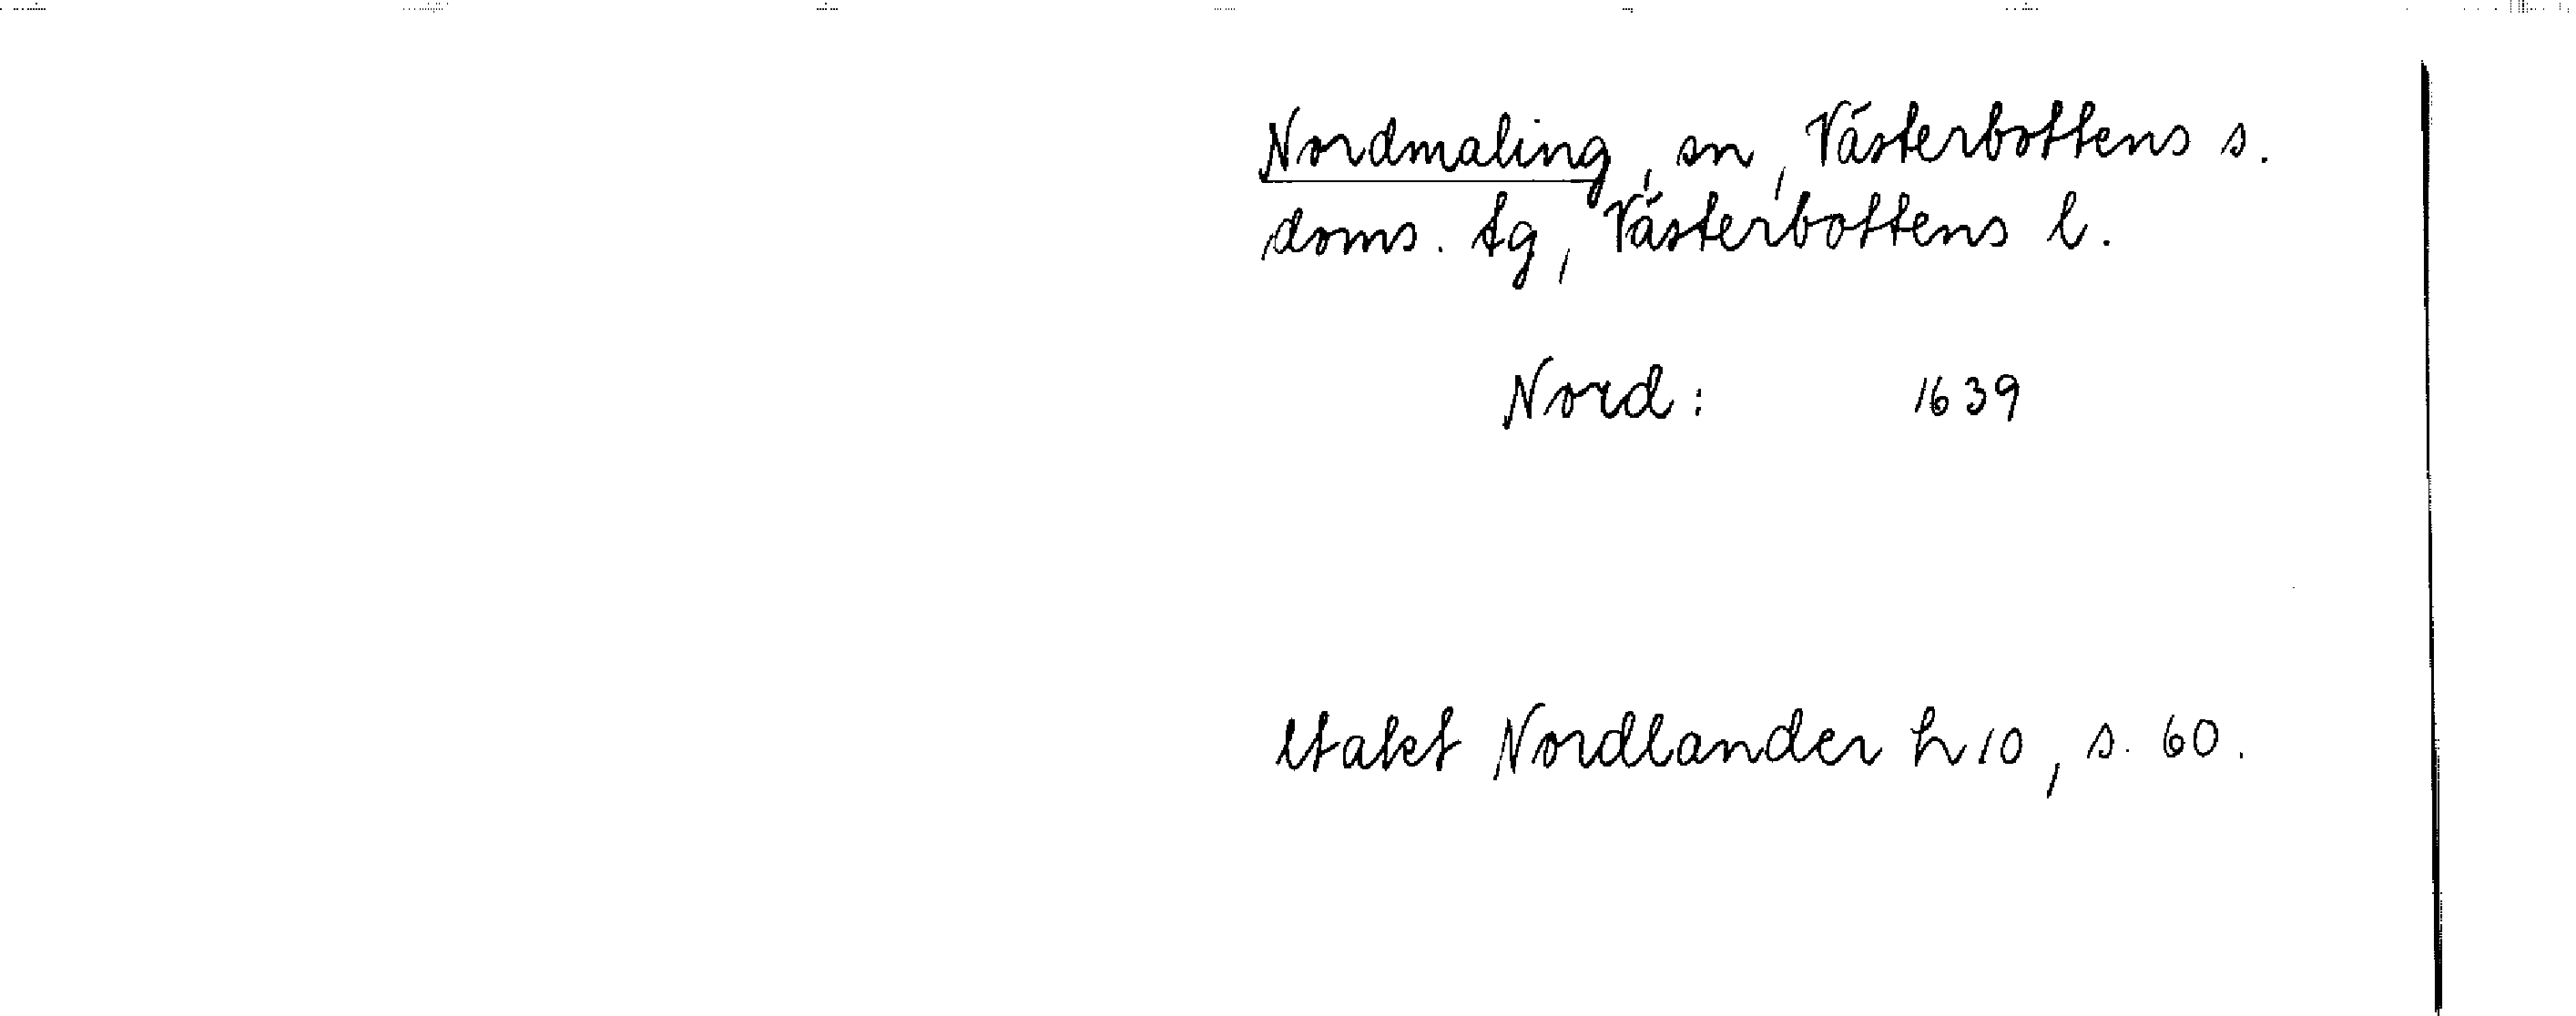 Nordmaling, sn, Västerbottens s.
doms. tg, Västerbottens l.
Nord: 1639
Nordlander h 10, s. 60.